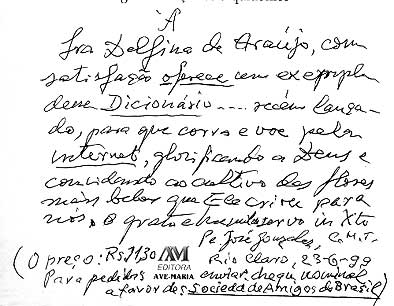 À
Sra Delfina de Araújo, com
satisfação oferece um exemplar
desse Dicionário .... recém lança-
do, para que corra e voe pela
internet, glorificando a Deus e
convidando ao cultivo das flores
mais belas que Ele criou para
nós. O grato e humilde servo in Xto
Pe. José Gonzalez, C.M.F.
Rio Claro, 23-6-99
(O preço: Rs 1130
AM
EDITORA
AVE-MARIA
Para pedidos enviar cheque nominal
a favor de Sociedade de Amigos do Brasil)